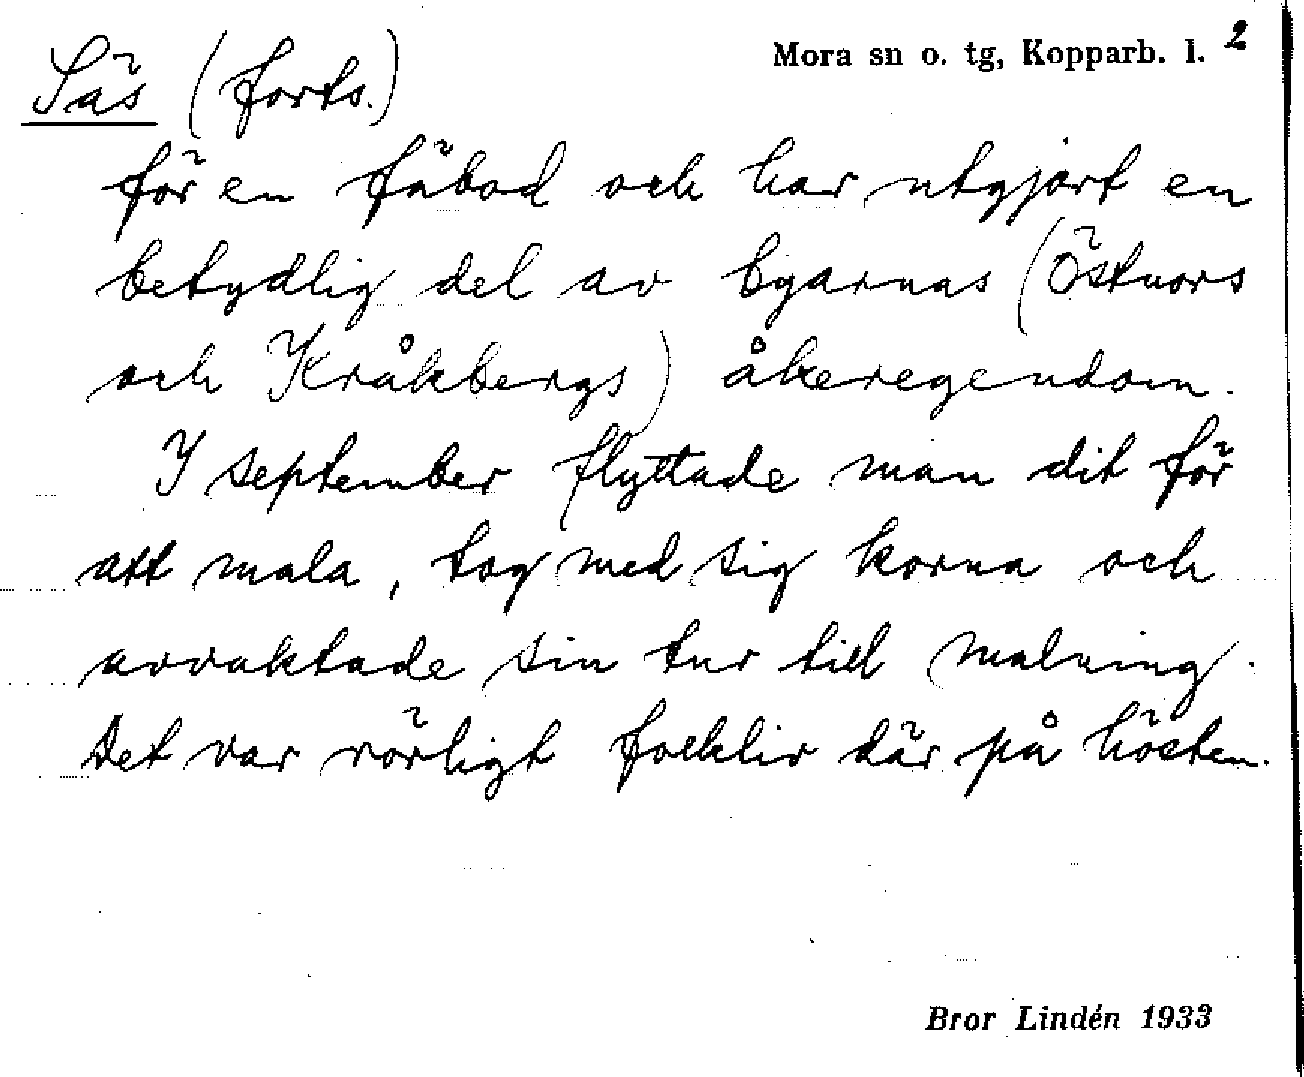 Mora sn o. tg, Kopparb. l. 2
Säs (forts.)
för en fäbod och har utgjort en
betydlig del av byarnas (Östnors
och Kråkbergs) åkeregendom.
I september flyttade man dit för
att mala, tog med sig korna och
avvaktade sin tur till malning.
Det var rörligt folkliv där på hösten.
Bror Lindén 1933